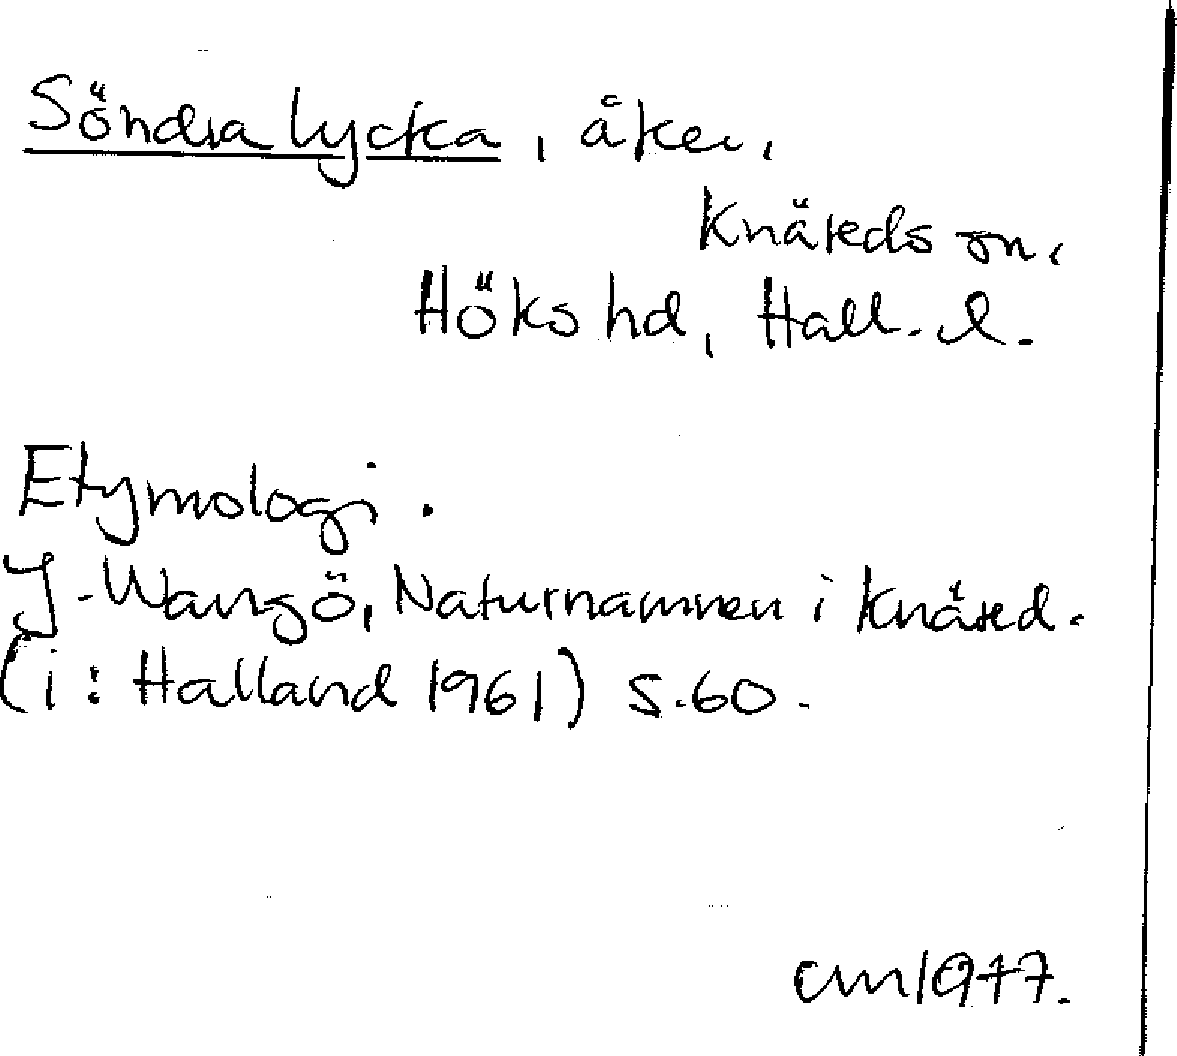 Söndra lycka, åker,
Knäreds sn.
Höks hd, Hall. l.
Etymologi.
J. Wangö, Naturnamnen i Knäred.
(i: Halland 1961) s. 60.
cm1977.